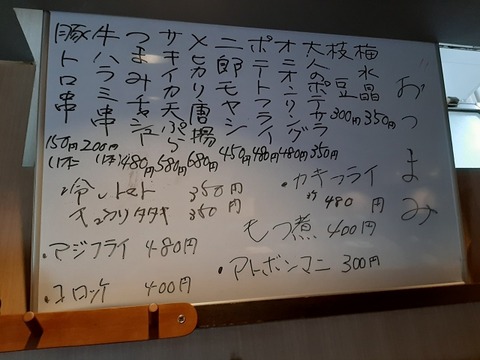 おつまみ
梅水晶 350円
枝豆 300円
大人のポテサラ 350円
オニオンリング 480円
ポテトフライ 480円
二郎モヤシ 450円
メヒカリ唐揚 680円
サキイカ天ぷら 580円
つまみチャーシュー 480円
牛ハラミ串 200円(1本)
豚トロ串 150円(1本)
・カキフライ 480円
もつ煮 400円
・アトボンマニ 300円
・冷しトマト 350円
・キュウリタタキ 350円
・アジフライ 480円
・コロッケ 400円